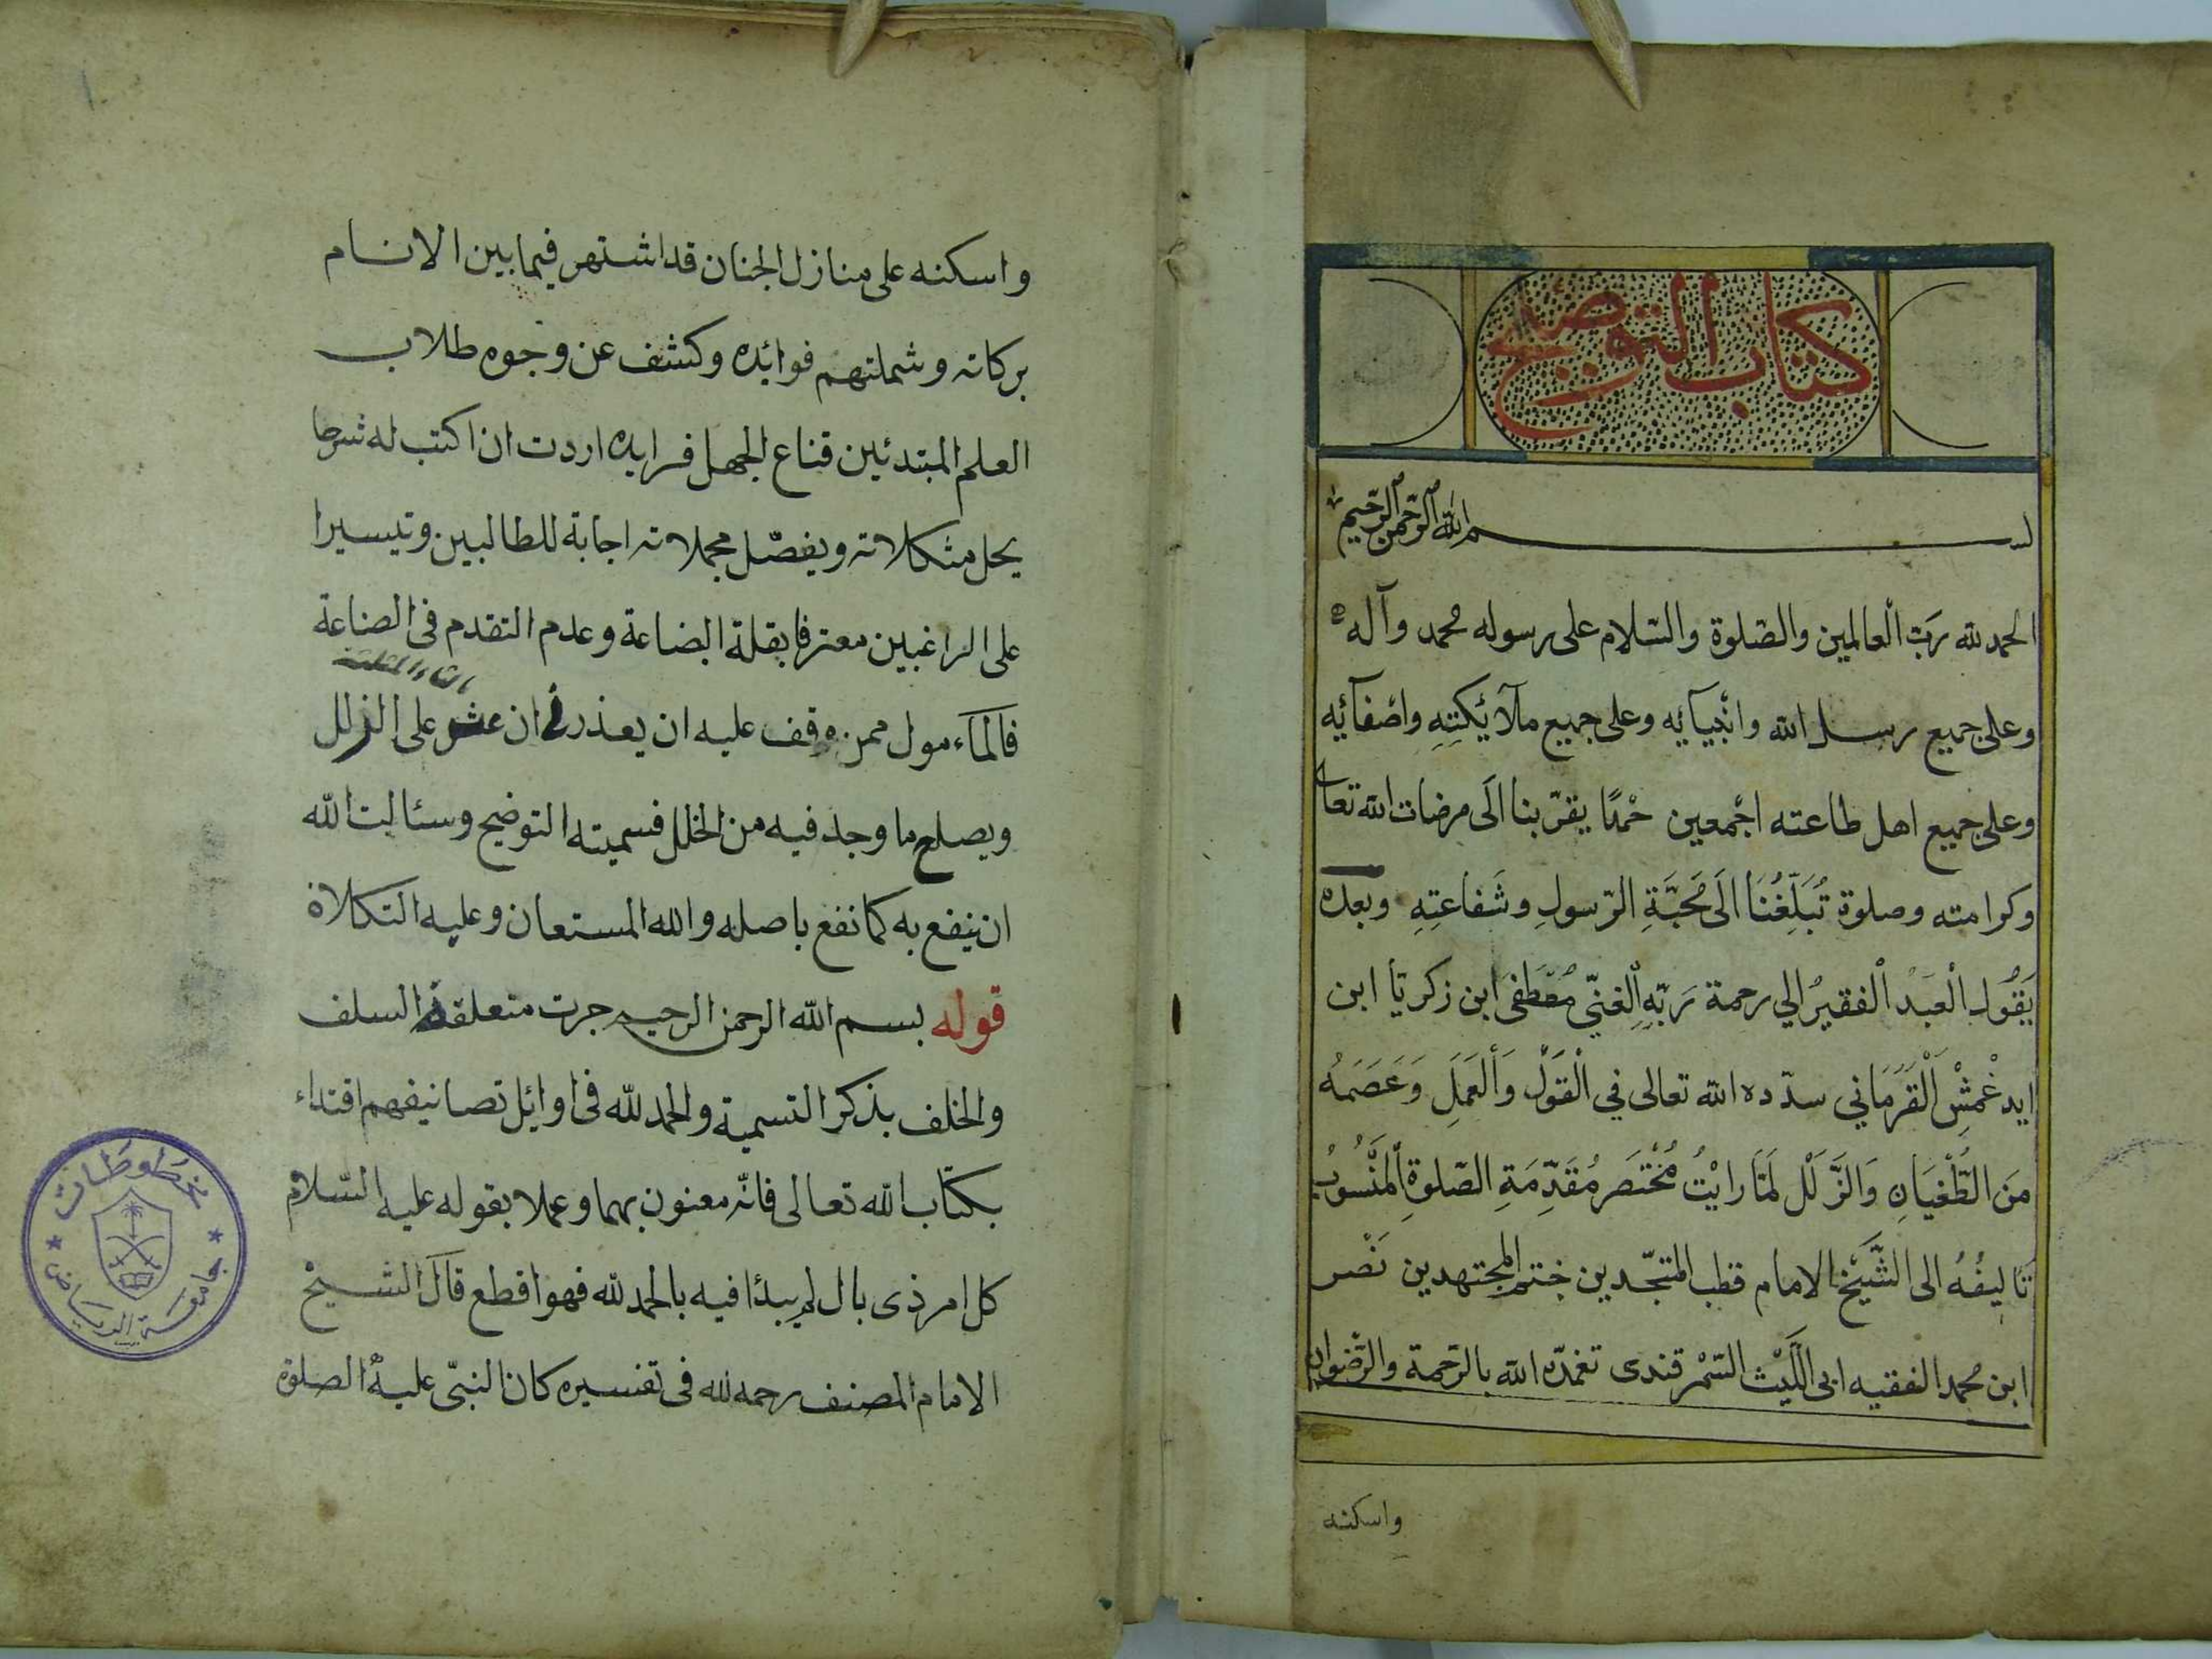 كتاب التوضيح
بسم الله الرحمن الرحيم
الحمد لله رَبّ الْعالمين والصّلوة والسّلام على رسوله محمد وآله
وعلى جميع رسل الله وانْبيآئِه وعلى جميع ملآئِكتِهِ واصْفآئِه
وعلى جميع اهل طاعته اجْمعين حمْدًا يقرّبنا الَى مرضات الله تعالى
وكرامته وصلوة تُبَلِّغُنَا الَى مَحَبَّةِ الرّسولِ وشَفاعَتِهِ وبعد
يَقُولُ الْعَبْدُ الْفقيرُ الي رحمة رَبّهِ الْغنيّ مُصْطَفى ابن زكريّا ابن
ايدغْمِشْ الْقَرَمَاني سدّده الله تعالى في الْقَوْلِ وَالْعَمَلِ وَعَصَمَهُ
مِنَ الطُّغْيَانِ وَالزَّلَلْ لَمّا رايْتُ مُخْتَصَر مُقَدِّمَةِ الصّلوةِ الْمَنْسُوبُ
تَاليفُهُ الى الشَّيْخ الامام قطب المتجّدين ختم المجتهدين نَصْر
ابن محمد الفقيه ابى اللَّيْث السّمْرقندى تغمّده الله بالرّحمة والرّضوان
واسكنه
واسكنه على منازل الجنان قد اشتهر فيما بين الانام
بركاته وشملتهم فوائده وكشف عن وجوه طلاب
العلم المبتدئين قناع الجهل فرايده اردت ان اكتب له شرحا
يحل مشكلاته ويفصّل مجملاته اجابة للطالبين وتيسيرا
على الراغبين معترفا بقلة البضاعة وعدم التقدم فى الصناعة
بالثاء المثلثة
فالمآءمول ممن وقف عليه ان يعذرنى ان عثر على الزلل
ويصلح ما وجد فيه من الخلل فسميته التوضيح وسئالت الله
ان ينفع به كما نفع باصله والله المستعان وعليه التكلاة
قوله بسم الله الرحمن الرحيم جرت متعلقة السلف
والخلف بذكر التسمية والحمد لله فى اوايل تصانيفهم اقتداء
بكتاب الله تعالى فانّه معنون بهما وعملا بقوله عليه السّلام
كل امر ذى بال لم يبدٔا فيه بالحمد لله فهو اقطع قال الشيخ
الامام المصنف رحمه الله فى تفسيره كان النبّى عليه الصلوة
مخطوطات
جامعة الرياض